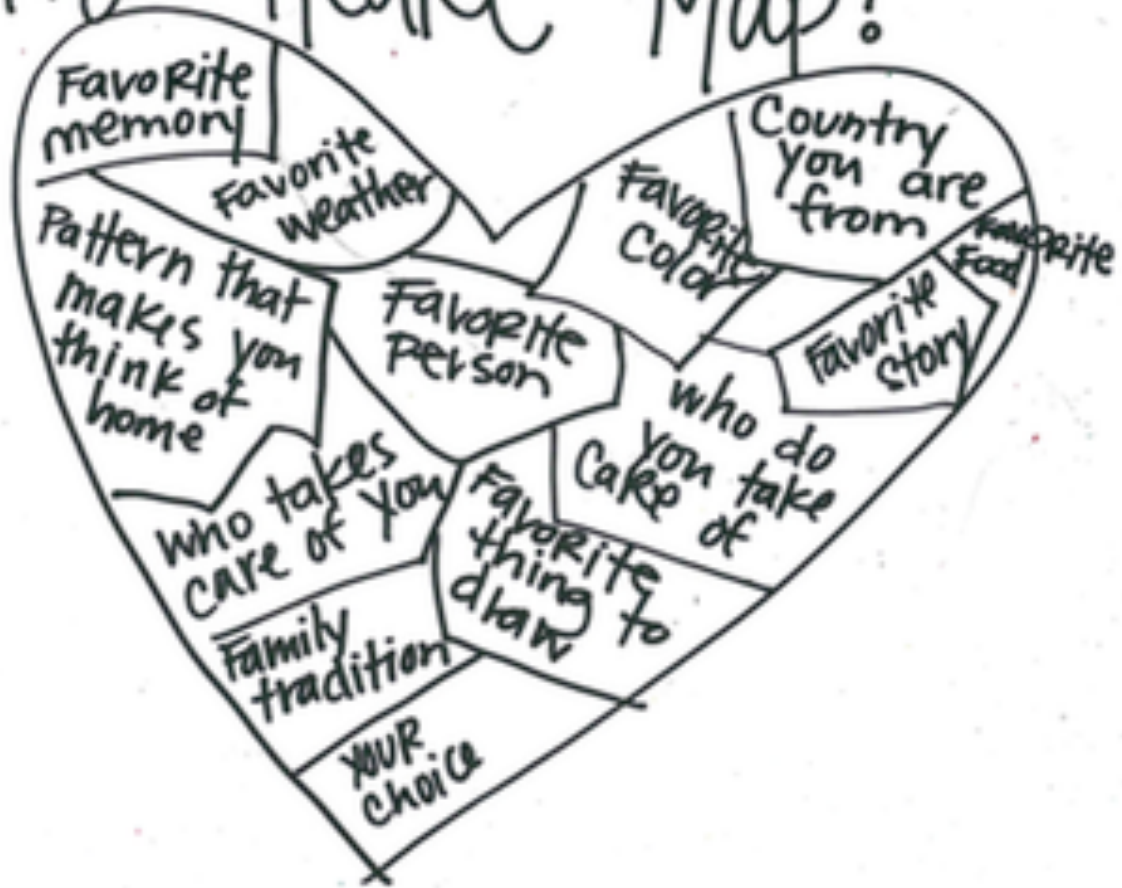 My Heart Map!
Favorite
memory
Favorite
weather
Favorite
Color
Country
you are
from
Favorite
Food
Favorite
story
Pattern that
makes you
think of
home
Favorite
person
who do
you take
Care of
who takes
care of you
Favorite
thing to
draw
Family
tradition
Your
choice